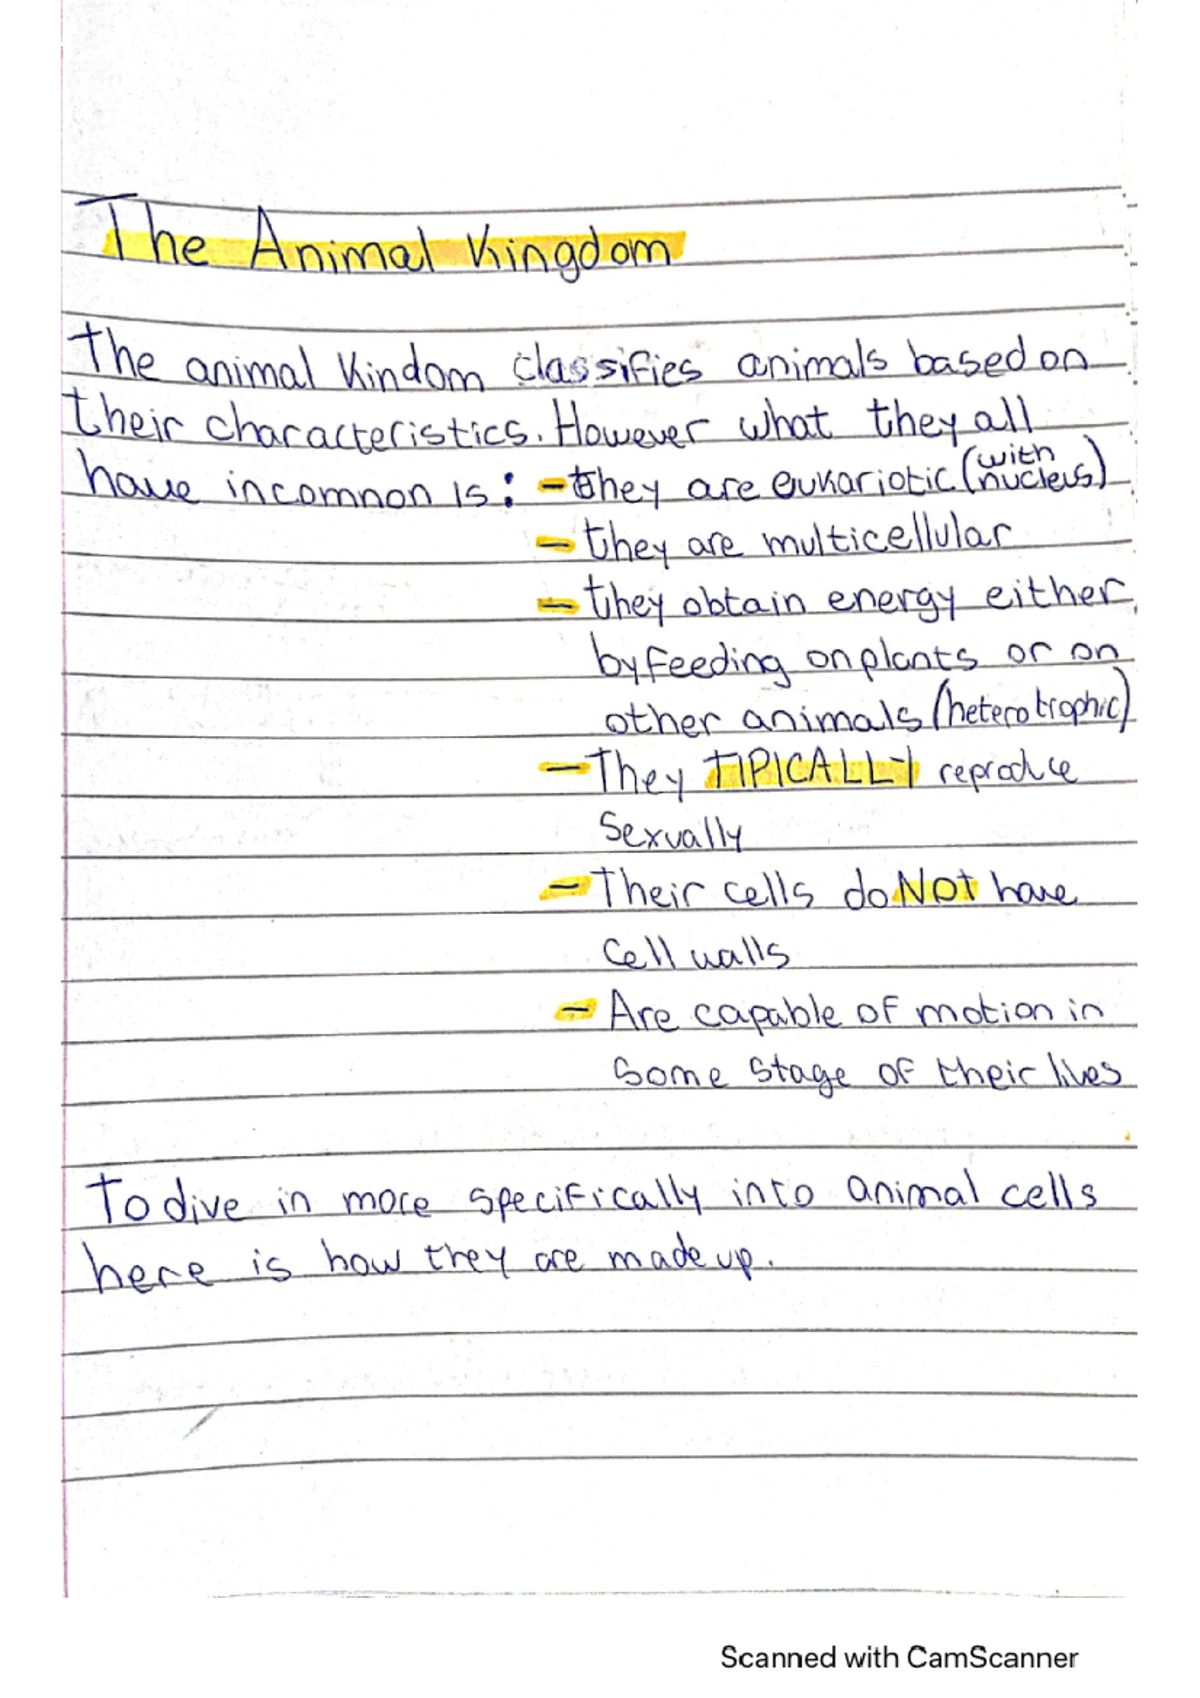 The Animal Kingdom
The animal Kindom classifies animals based on
their characteristics. However what they all
have incomnon is: - they are eukariotic (with nucleus)
- they are multicellular
- they obtain energy either
by feeding on plants or on
other animals (heterotrophic)
- They TIPICALLY reproduce
Sexually
- Their cells do NOT have
Cell walls
- Are capable of motion in
Some stage of their lives
To dive in more specifically into animal cells
here is how they are made up.
Scanned with CamScanner